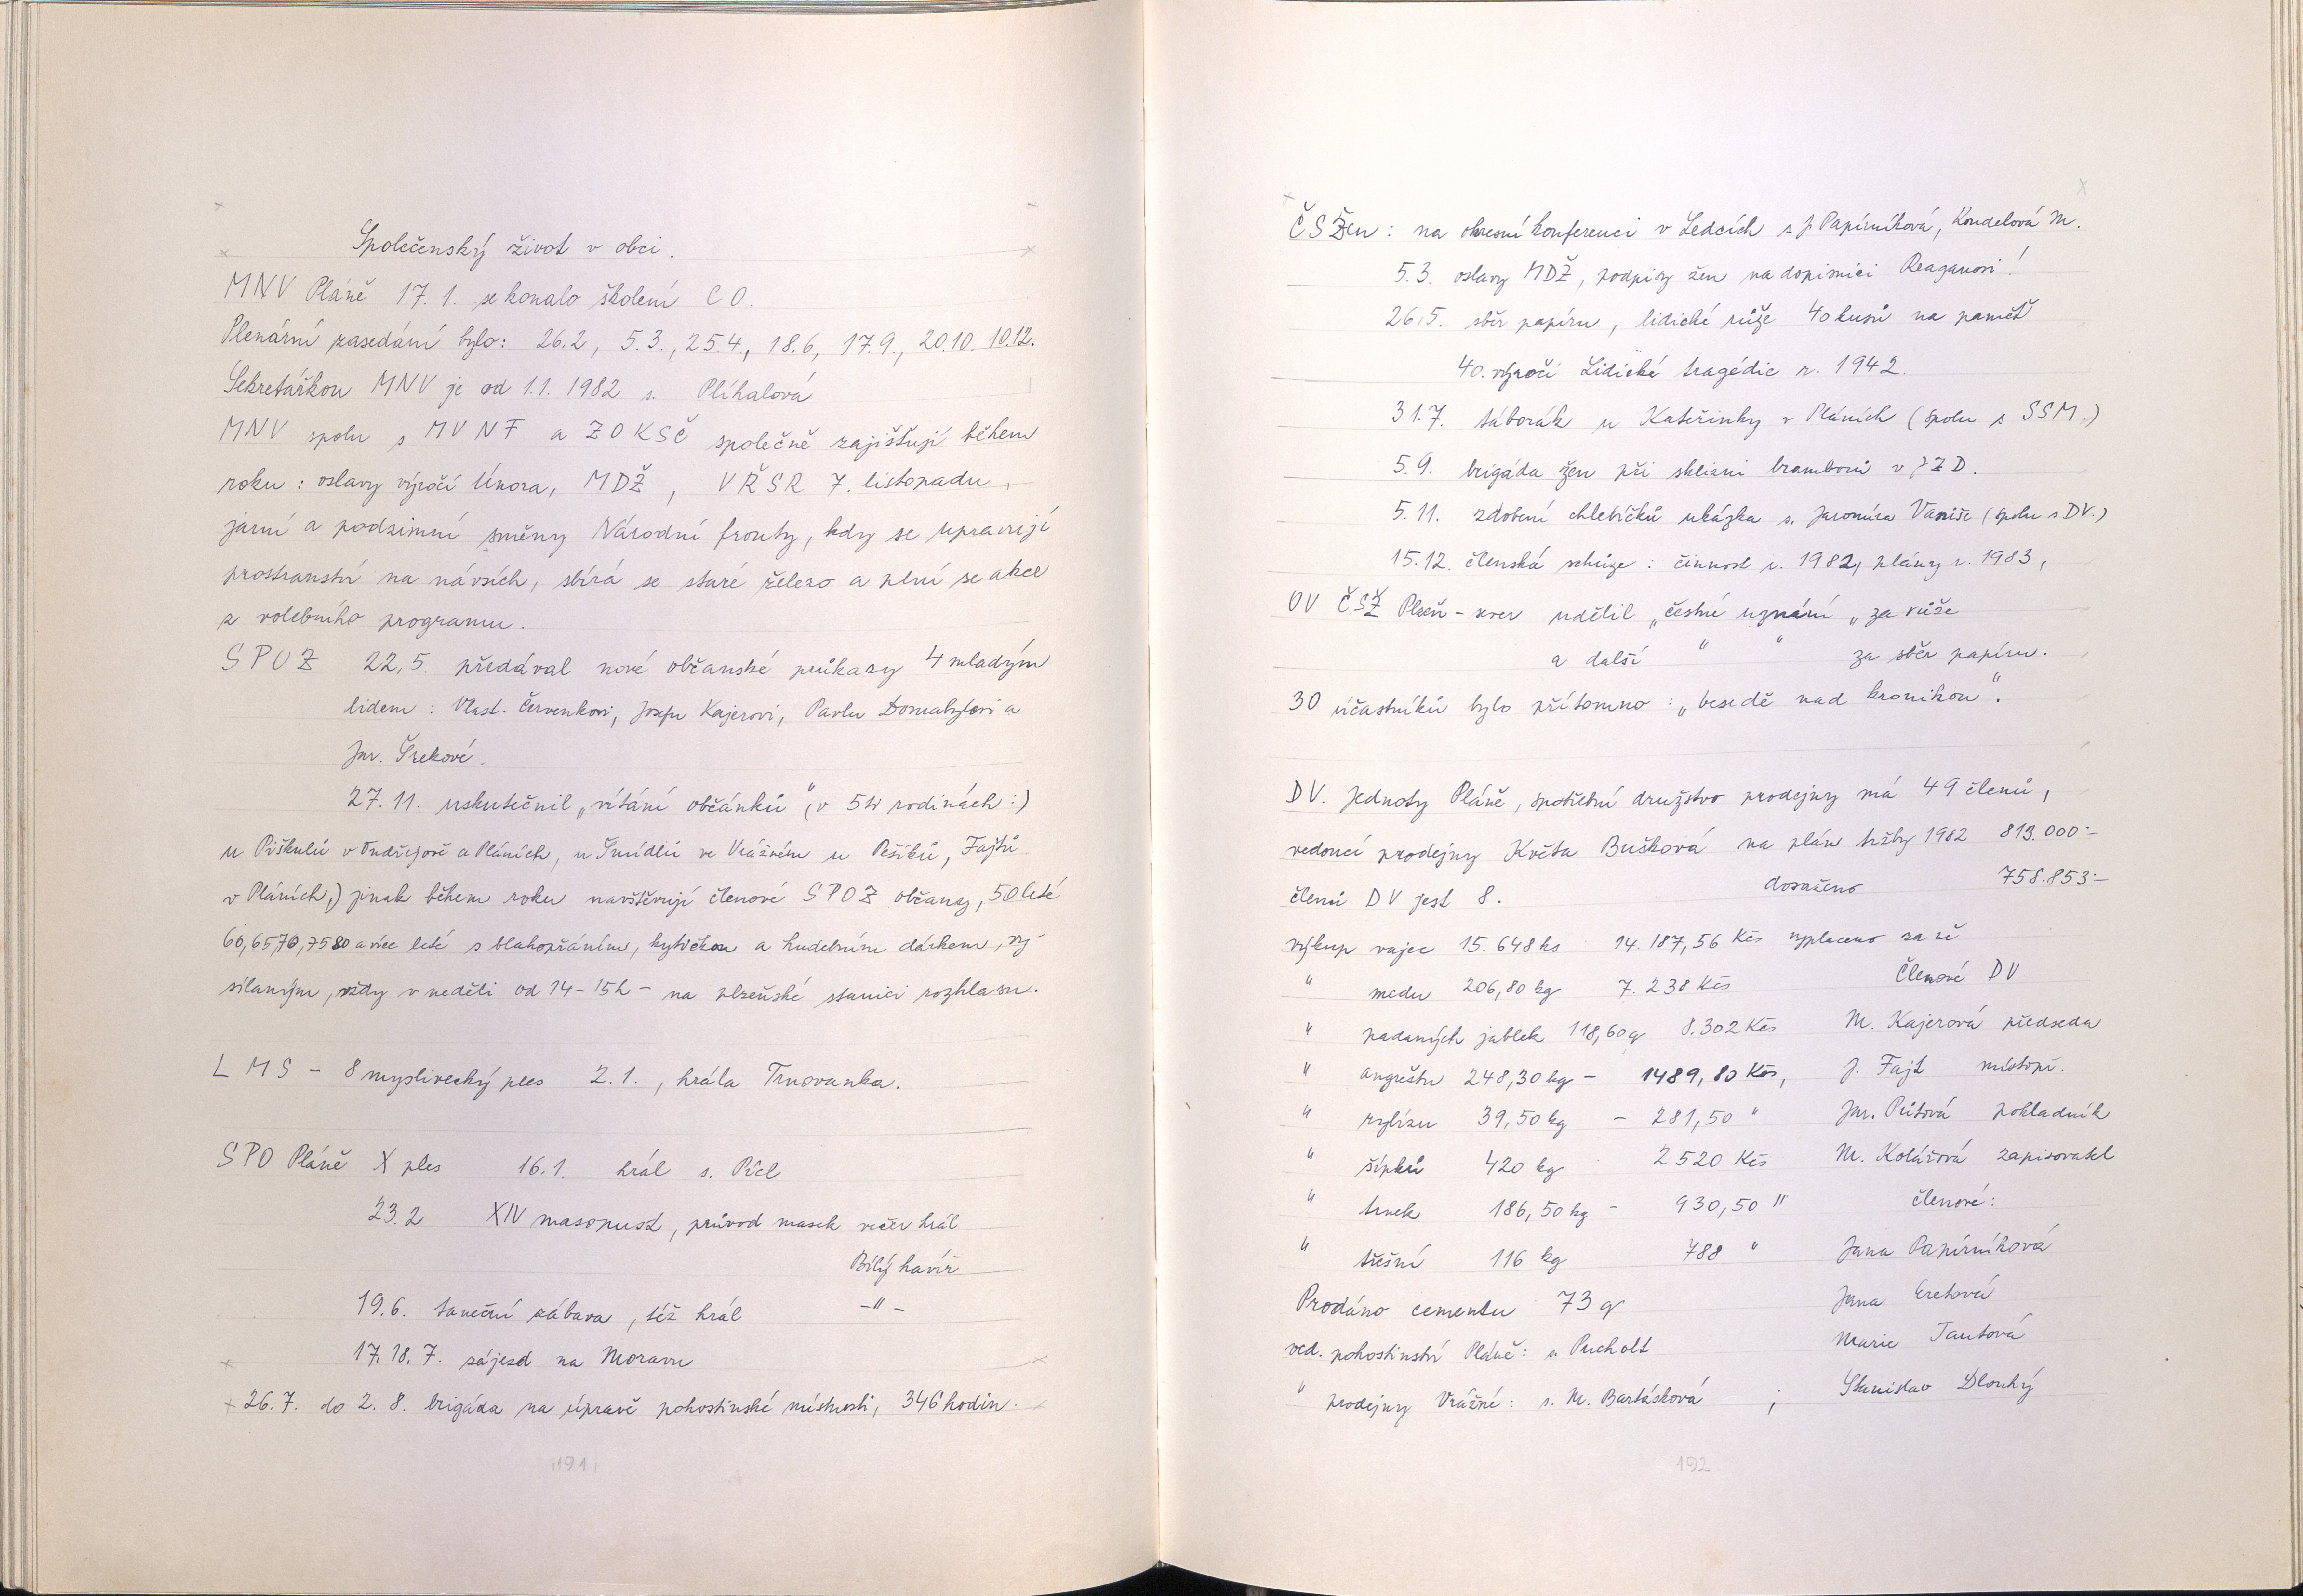 Společenský život v obci.
MNV Pláně 17.1. se konalo školení CO.
Plenární zasedání bylo: 26.2, 5.3., 25.4., 18.6, 17.9., 20.10. 10.12.
Sekretářkou MNV je od 1.1. 1982 s. Plíhalová
MNV spolu s MVNF a ZOKSČ společně zajišťují během
roku: oslavy výročí Února, MDŽ, VŘSR 7. listopadu,
jarní a podzimní směny Národní fronty, kdy se upravují
prostranství na návsích, sbírá se staré železo a plní se akce
z volebního programu.
SPOZ 22.5. předával nové občanské průkazy 4 mladým
lidem: Vlast. Červenkovi, Josefu Kajerovi, Pavlu Domabylovi a
Jar. Šrekové.
27.11. uskutečnil „vítání občánků" (v 5ti rodinách:)
u Piškulů v Ondřejově a Pláních, u Šmídlů ve Vrážném u Pešíků, Fajtů
v Pláních,) jinak během roku navštěvují členové SPOZ občany, 50leté
60,6570,7580 a více leté s blahopřáním, kytičkou a hudebním dárkem, vy-
sílaným, vždy v neděli od 14-15h - na plzeňské stanici rozhlasu.
LMS - 8 myslivecký ples 2.1., hrála Trnovanka.
SPO Pláně X ples 16.1. hrál s. Picl
23.2 XIV masopust, průvod masek večer hrál
Bílý havíř
19.6. taneční zábava, též hrál -"-
17.18.7. zájezd na Moravu
26.7. do 2.8. brigáda na úpravě pohostinské místnosti, 346 hodin.
191
ČSŽen: na okresní konferenci v Ledcích s J Papírníková, Koudelová M.
5.3. oslavy MDŽ, podpisy žen na dopisnici Reaganovi!
26.5. sběr papíru, lidické růže 40 kusů na paměť
40. výročí Lidické tragédie r. 1942.
31.7. táborák u Kateřinky v Pláních (spolu s SSM.)
5.9. brigáda žen při sklizni bramborů v JZD.
5.11. zdobení chlebíčků ukázka s. Jaromíra Vaniše (spolu s DV.)
15.12. členská schůze: činnost r. 1982, plány r. 1983,
OV ČSŽ Plzeň-sever udělil „čestné uznání„ za růže
a další " " za sběr papíru.
30 účastníků bylo přítomno: „besedě nad kronikou".
DV. Jednoty Pláně, spotřební družstvo prodejny má 49 členů,
vedoucí prodejny Květa Bušková na plán tržby 1982 813.000:-
členů DV jest 8. dosaženo 758.853:-
výkup vajec 15.648 ks 14.187,56 Kčs vyplaceno za ně
" medu 206,80 kg 7.238 Kčs Členové DV
" padaných jablek 118,60q 8.302 Kčs M. Kajerová předseda
" angreštu 248,30 kg - 1489,80 Kčs, J. Fajt místopř.
" rybízu 39,50 kg - 281,50 " Jar. Půtová pokladník
" šípků 420 kg 2520 Kčs M. Kolářová zapisovatel
" trnek 186,50 kg - 930,50 " členové:
" třešní 116 kg 788 " Jana Papírníková
Prodáno cementu 73 q Jana Eretová
ved. pohostinství Pláně: s Pucholt Marie Tautová
" prodejny Vrážné: s. M. Bartásková ; Stanislav Dlouhý
192